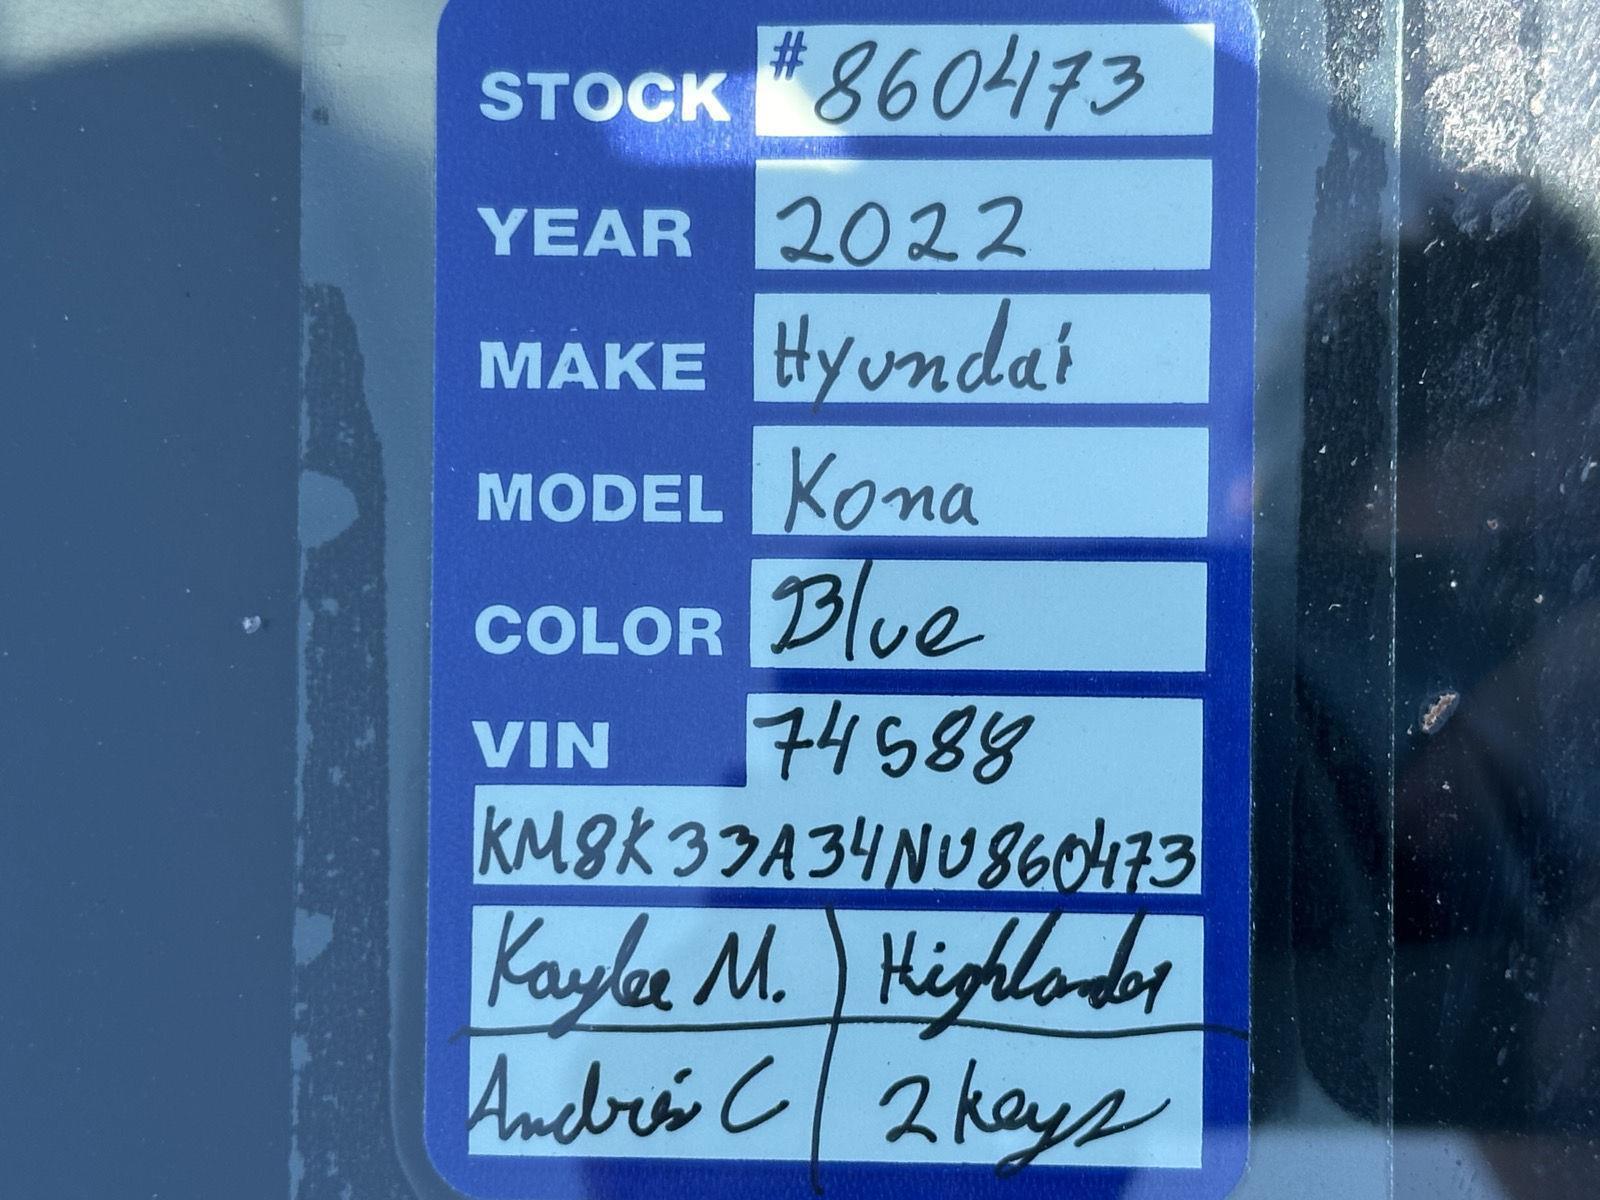 STOCK #860473
YEAR 2022
MAKE Hyundai
MODEL Kona
COLOR Blue
VIN 74588
KM8K33A34NU860473
Kaylee M. Highlander
Andrés C 2 keys